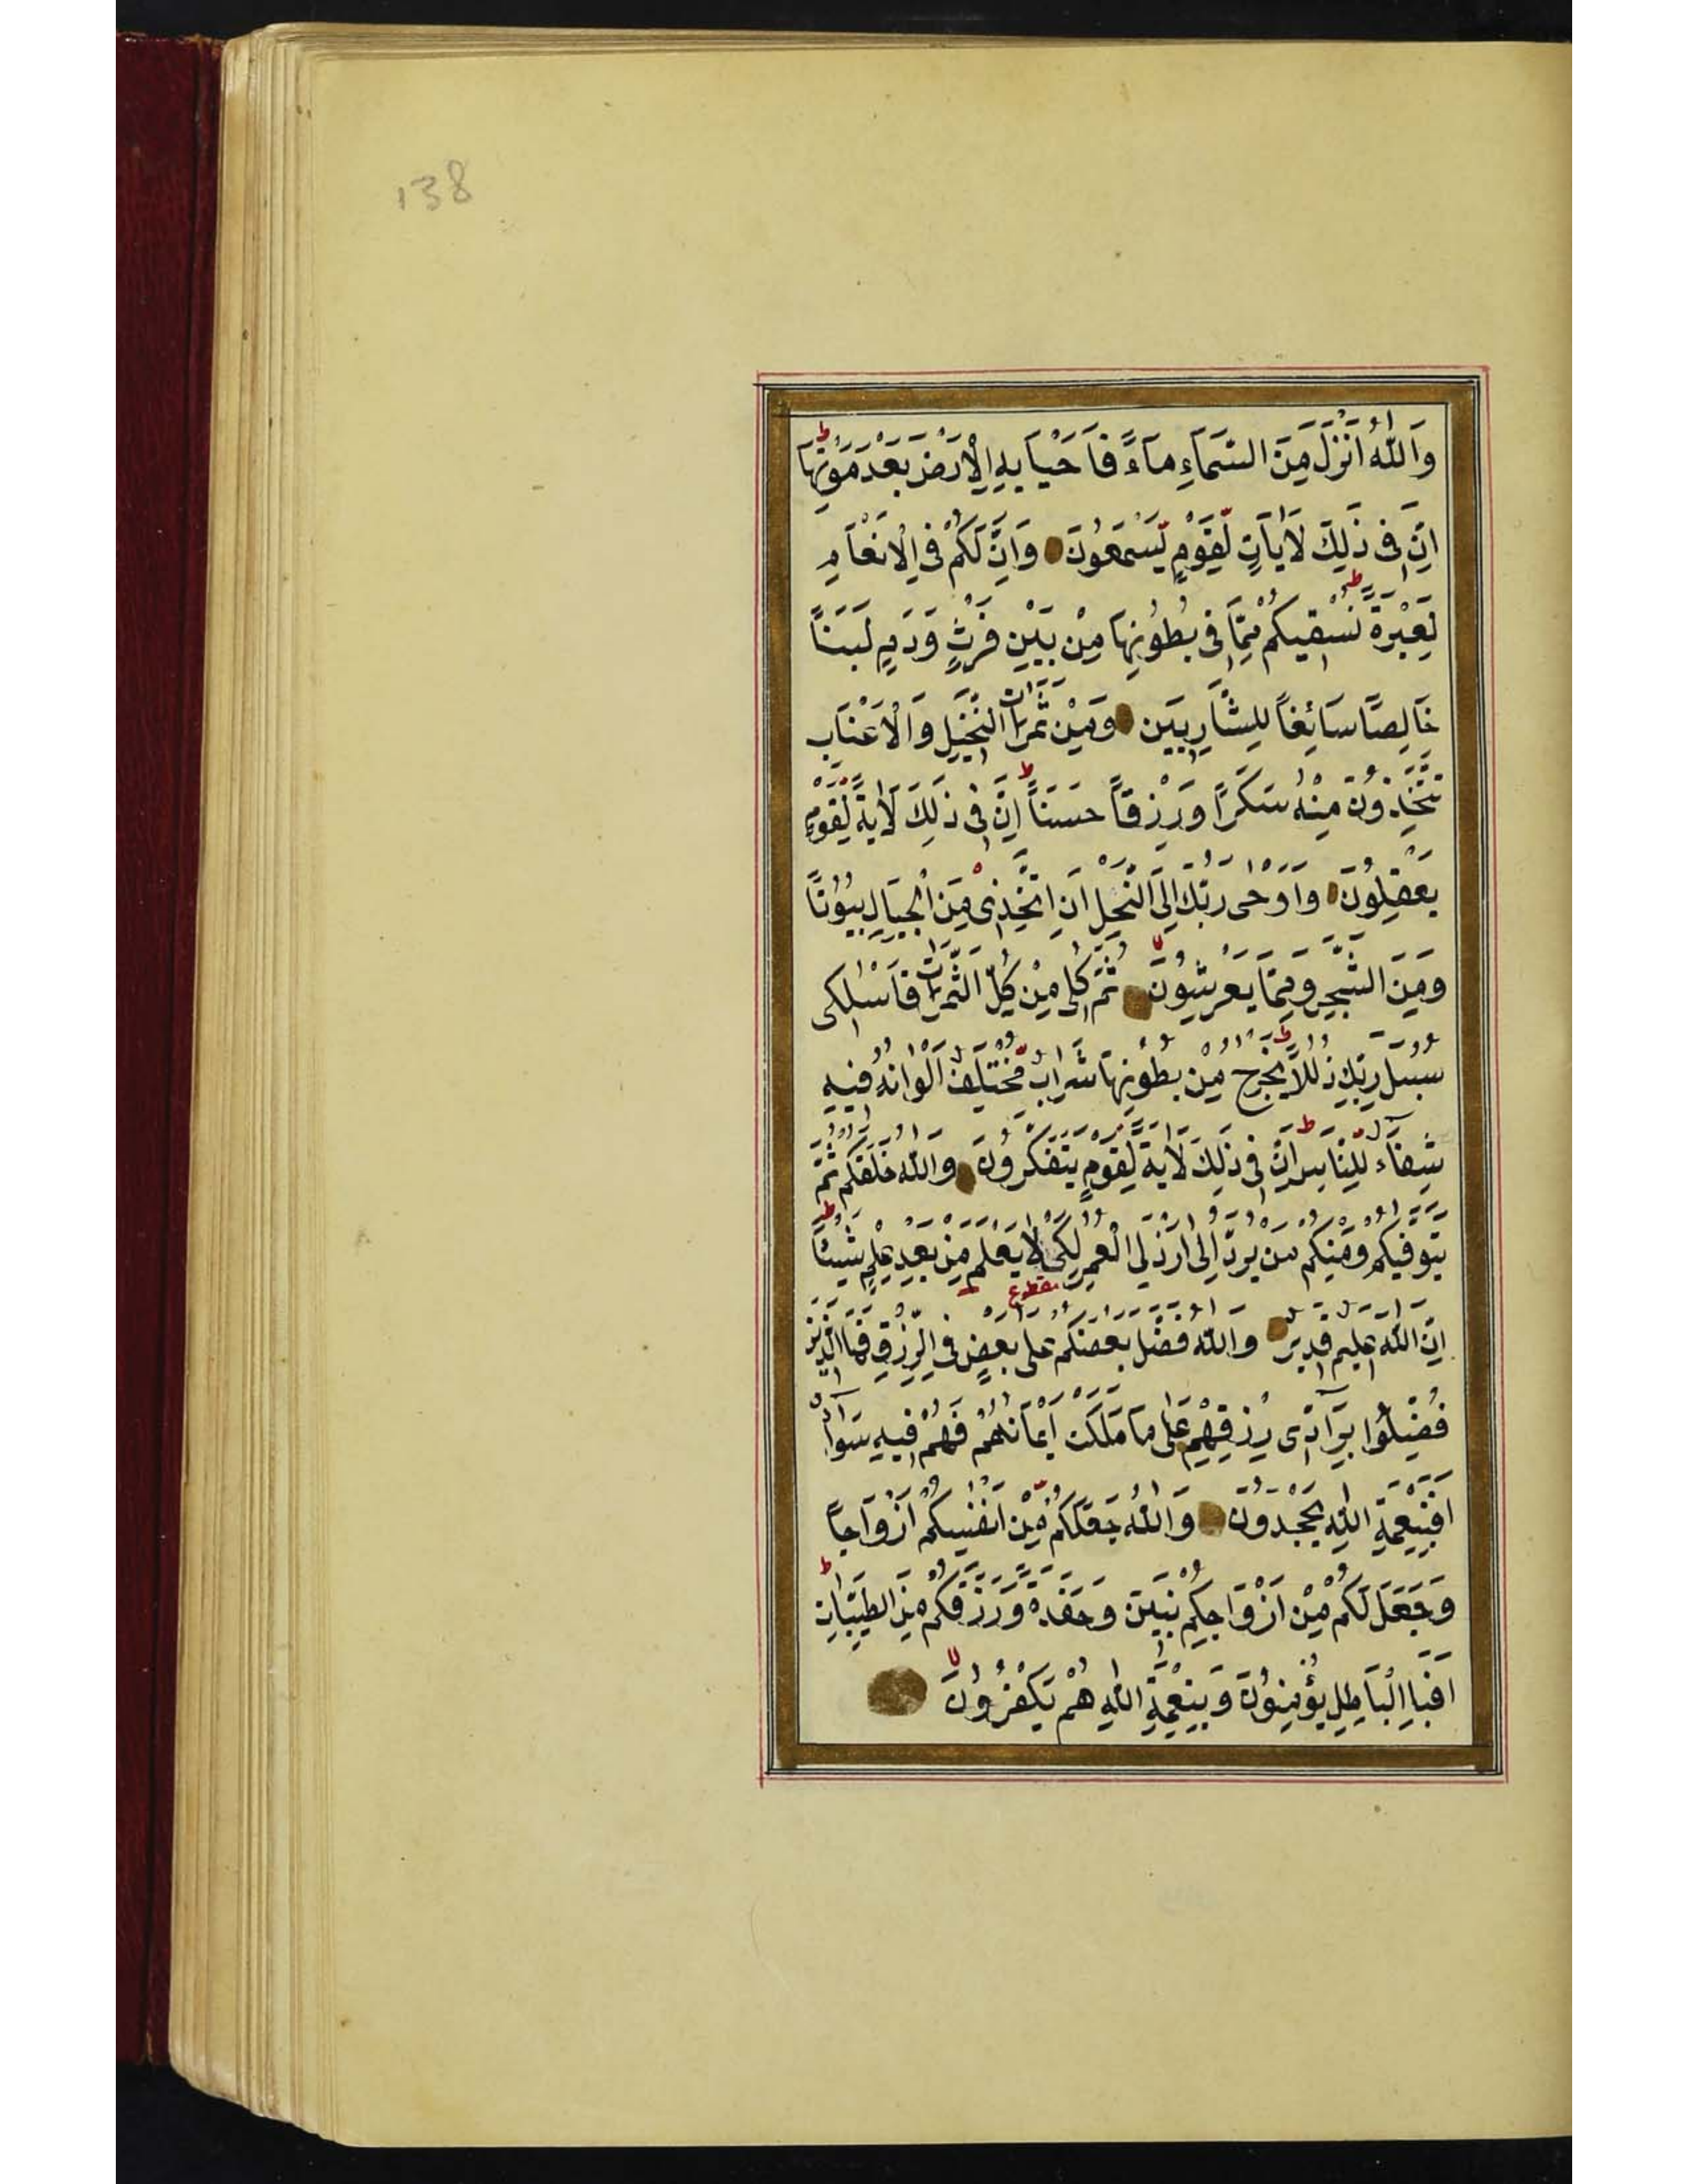 138
وَاللّٰهُ اَنْزَلَ مِنَ السَّمَاءِ مَاءً فَاَحْيَا بِهِ الْاَرْضَ بَعْدَ مَوْتِهَا ط
اِنَّ فِى ذٰلِكَ لَاٰيَاتٍ لِّقَوْمٍ يَّسْمَعُوْنَ وَاِنَّ لَكُمْ فِى الْاَنْعَامِ
لَعِبْرَةً ط نُسْقِيكُمْ مِمَّا فِى بُطُوْنِهَا مِنْ بَيْنِ فَرْثٍ وَدَمٍ لَبَنًا
خَالِصًا سَائِغًا لِلشَّارِبِيَن وَمِنْ ثَمَرَاتِ النَّخِيلِ وَالْاَعْنَابِ
تَتَّخِذُوْنَ مِنْهُ سَكَرًا وَرِزْقًا حَسَنًا ط اِنَّ فِى ذٰلِكَ لَاٰيَةً لِّقَوْمٍ
يَعْقِلُوْنَ وَاَوْحٰى رَبُّكَ اِلَى النَّحْلِ اَنِ اتَّخِذِىْ مِنَ الْجِبَالِ بُيُوْتًا
وَمِنَ الشَّجَرِ وَمِمَّا يَعْرِشُوْنَ لا ثُمَّ كُلِى مِنْ كُلِّ الثَّمَرَاتِ فَاسْلُكِى
سُبُلَ رَبِّكِ ذُلُلًا ط يَخْرُجُ مِنْ بُطُوْنِهَا شَرَابٌ مُّخْتَلِفٌ اَلْوَانُهُ فِيهِ
شِفَاءٌ لِّلنَّاسِ ط اِنَّ فِى ذٰلِكَ لَاٰيَةً لِّقَوْمٍ يَتَفَكَّرُوْنَ وَاللّٰهُ خَلَقَكُمْ ثُمَّ
يَتَوَفّٰيكُمْ وَمِنْكُمْ مَنْ يُرَدُّ اِلٰى اَرْذَلِ الْعُمُرِ لِكَىْ لَا يَعْلَمَ مِنْ بَعْدِ عِلْمٍ شَيْئًا ط
مقطوع
اِنَّ اللّٰهَ عَلِيمٌ قَدِيرٌ وَاللّٰهُ فَضَّلَ بَعْضَكُمْ عَلٰى بَعْضٍ فِى الرِّزْقِ فَمَا الَّذِينَ
فُضِّلُوْا بِرَآدِّى رِزْقِهِمْ عَلٰى مَا مَلَكَتْ اَيْمَانُهُمْ فَهُمْ فِيهِ سَوَآءٌ
اَفَبِنِعْمَةِ اللّٰهِ يَجْحَدُوْنَ وَاللّٰهُ جَعَلَكُمْ مِّنْ اَنْفُسِكُمْ اَزْوَاجًا
وَجَعَلَ لَكُمْ مِنْ اَزْوَاجِكُمْ بَنِيَن وَحَفَدَةً وَرَزَقَكُمْ مِنَ الطَّيِّبَاتِ ط
اَفَبِالْبَاطِلِ يُؤْمِنُوْنَ وَبِنِعْمَةِ اللّٰهِ هُمْ يَكْفُرُوْنَ لا